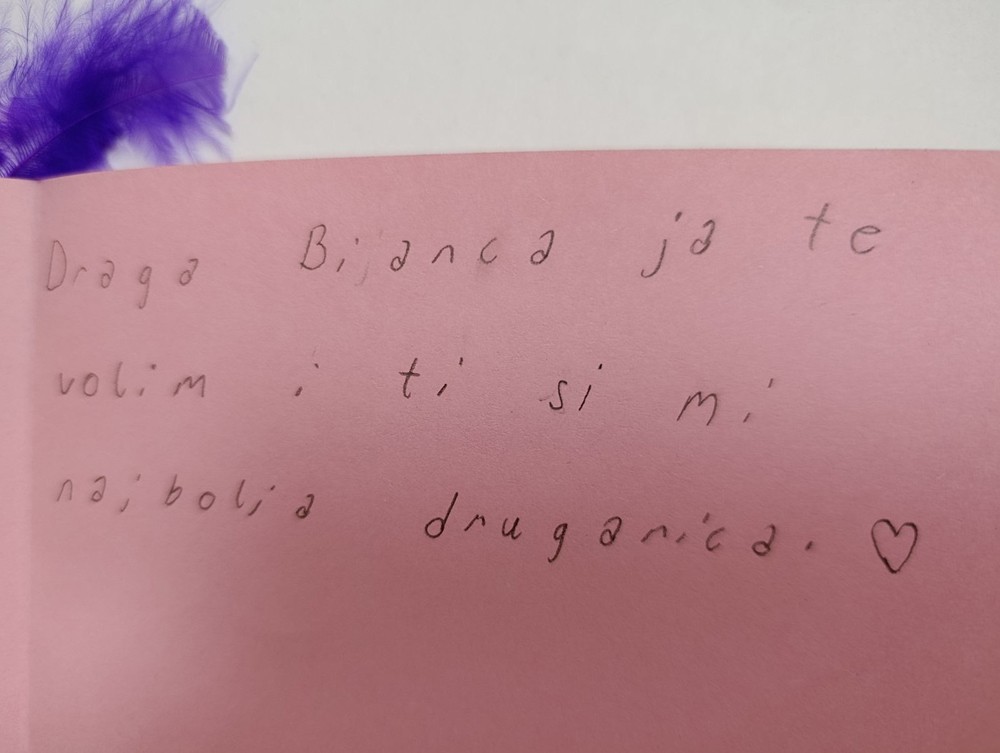 Draga Bianca ja te
volim i ti si mi
najbolja drugarica. ♡